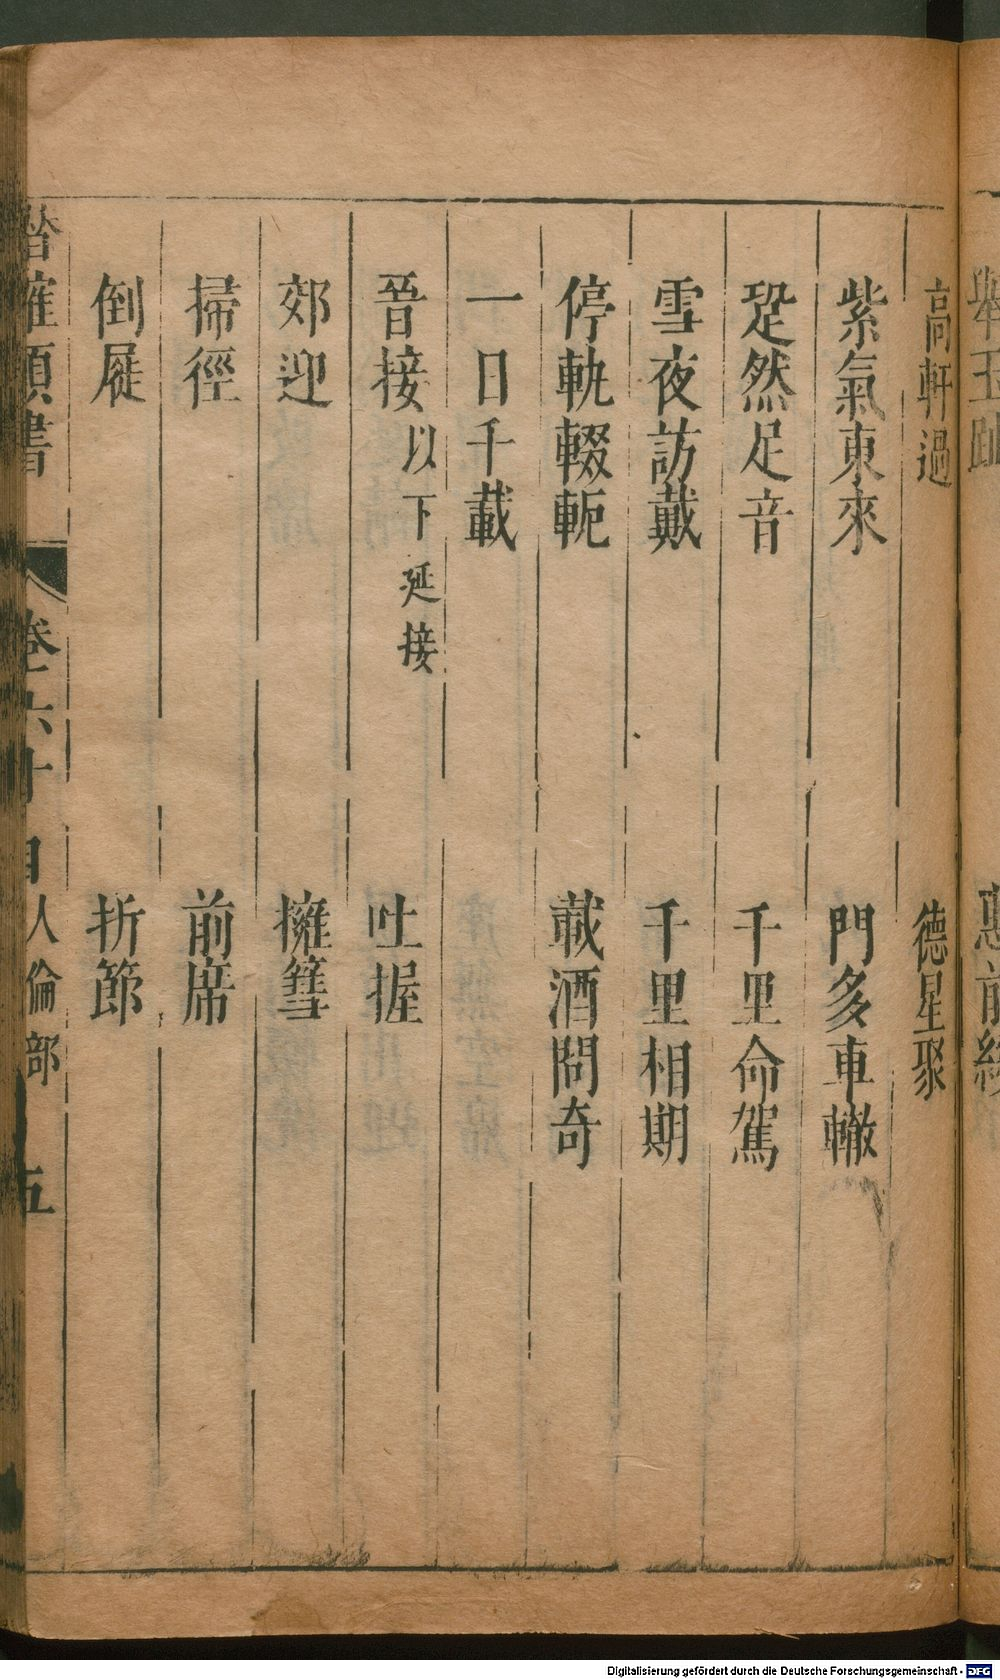 高軒過 德星聚
紫氣東來 門多車轍
跫然足音 千里命駕
雪夜訪戴 千里相期
停軌輟軛 載酒問奇
一日千載
晉接以下延接 吐握
郊迎 擁篲
掃徑 前席
倒屣 折節
卷六十 人倫部 五
Digitalisierung gefördert durch die Deutsche Forschungsgemeinschaft - DFG